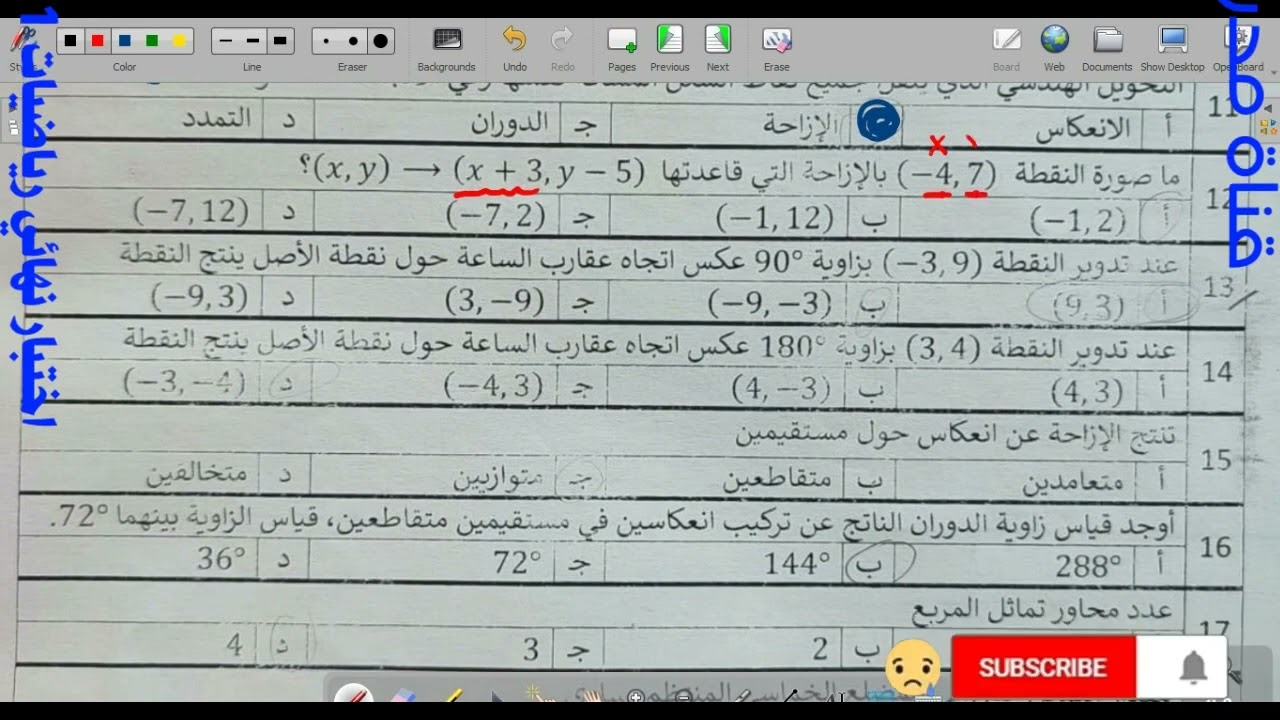 Color
Line
Eraser
Backgrounds
Undo
Redo
Pages
Previous
Next
Erase
Board
Web
Documents
Show Desktop
OpenBoard
قناة
اختبار نهائي رياضيات 1
11
أ الانعكاس الإزاحة جـ الدوران د التمدد
12 ما صورة النقطة (−4, 7) بالإزاحة التي قاعدتها (x, y) ⟶ (x + 3, y − 5)؟
أ (−1, 2) ب (−1, 12) جـ (−7, 2) د (−7, 12)
13 عند تدوير النقطة (−3, 9) بزاوية 90° عكس اتجاه عقارب الساعة حول نقطة الأصل ينتج النقطة
أ (9, 3) ب (−9, −3) جـ (3, −9) د (−9, 3)
14 عند تدوير النقطة (3, 4) بزاوية 180° عكس اتجاه عقارب الساعة حول نقطة الأصل ينتج النقطة
أ (4, 3) ب (4, −3) جـ (−4, 3) د (−3, −4)
15 تنتج الإزاحة عن انعكاس حول مستقيمين
أ متعامدين ب متقاطعين جـ متوازيين د متخالفين
16 أوجد قياس زاوية الدوران الناتج عن تركيب انعكاسين في مستقيمين متقاطعين، قياس الزاوية بينهما 72°.
أ 288° ب 144° جـ 72° د 36°
17 عدد محاور تماثل المربع
ب 2 جـ 3 د 4
SUBSCRIBE